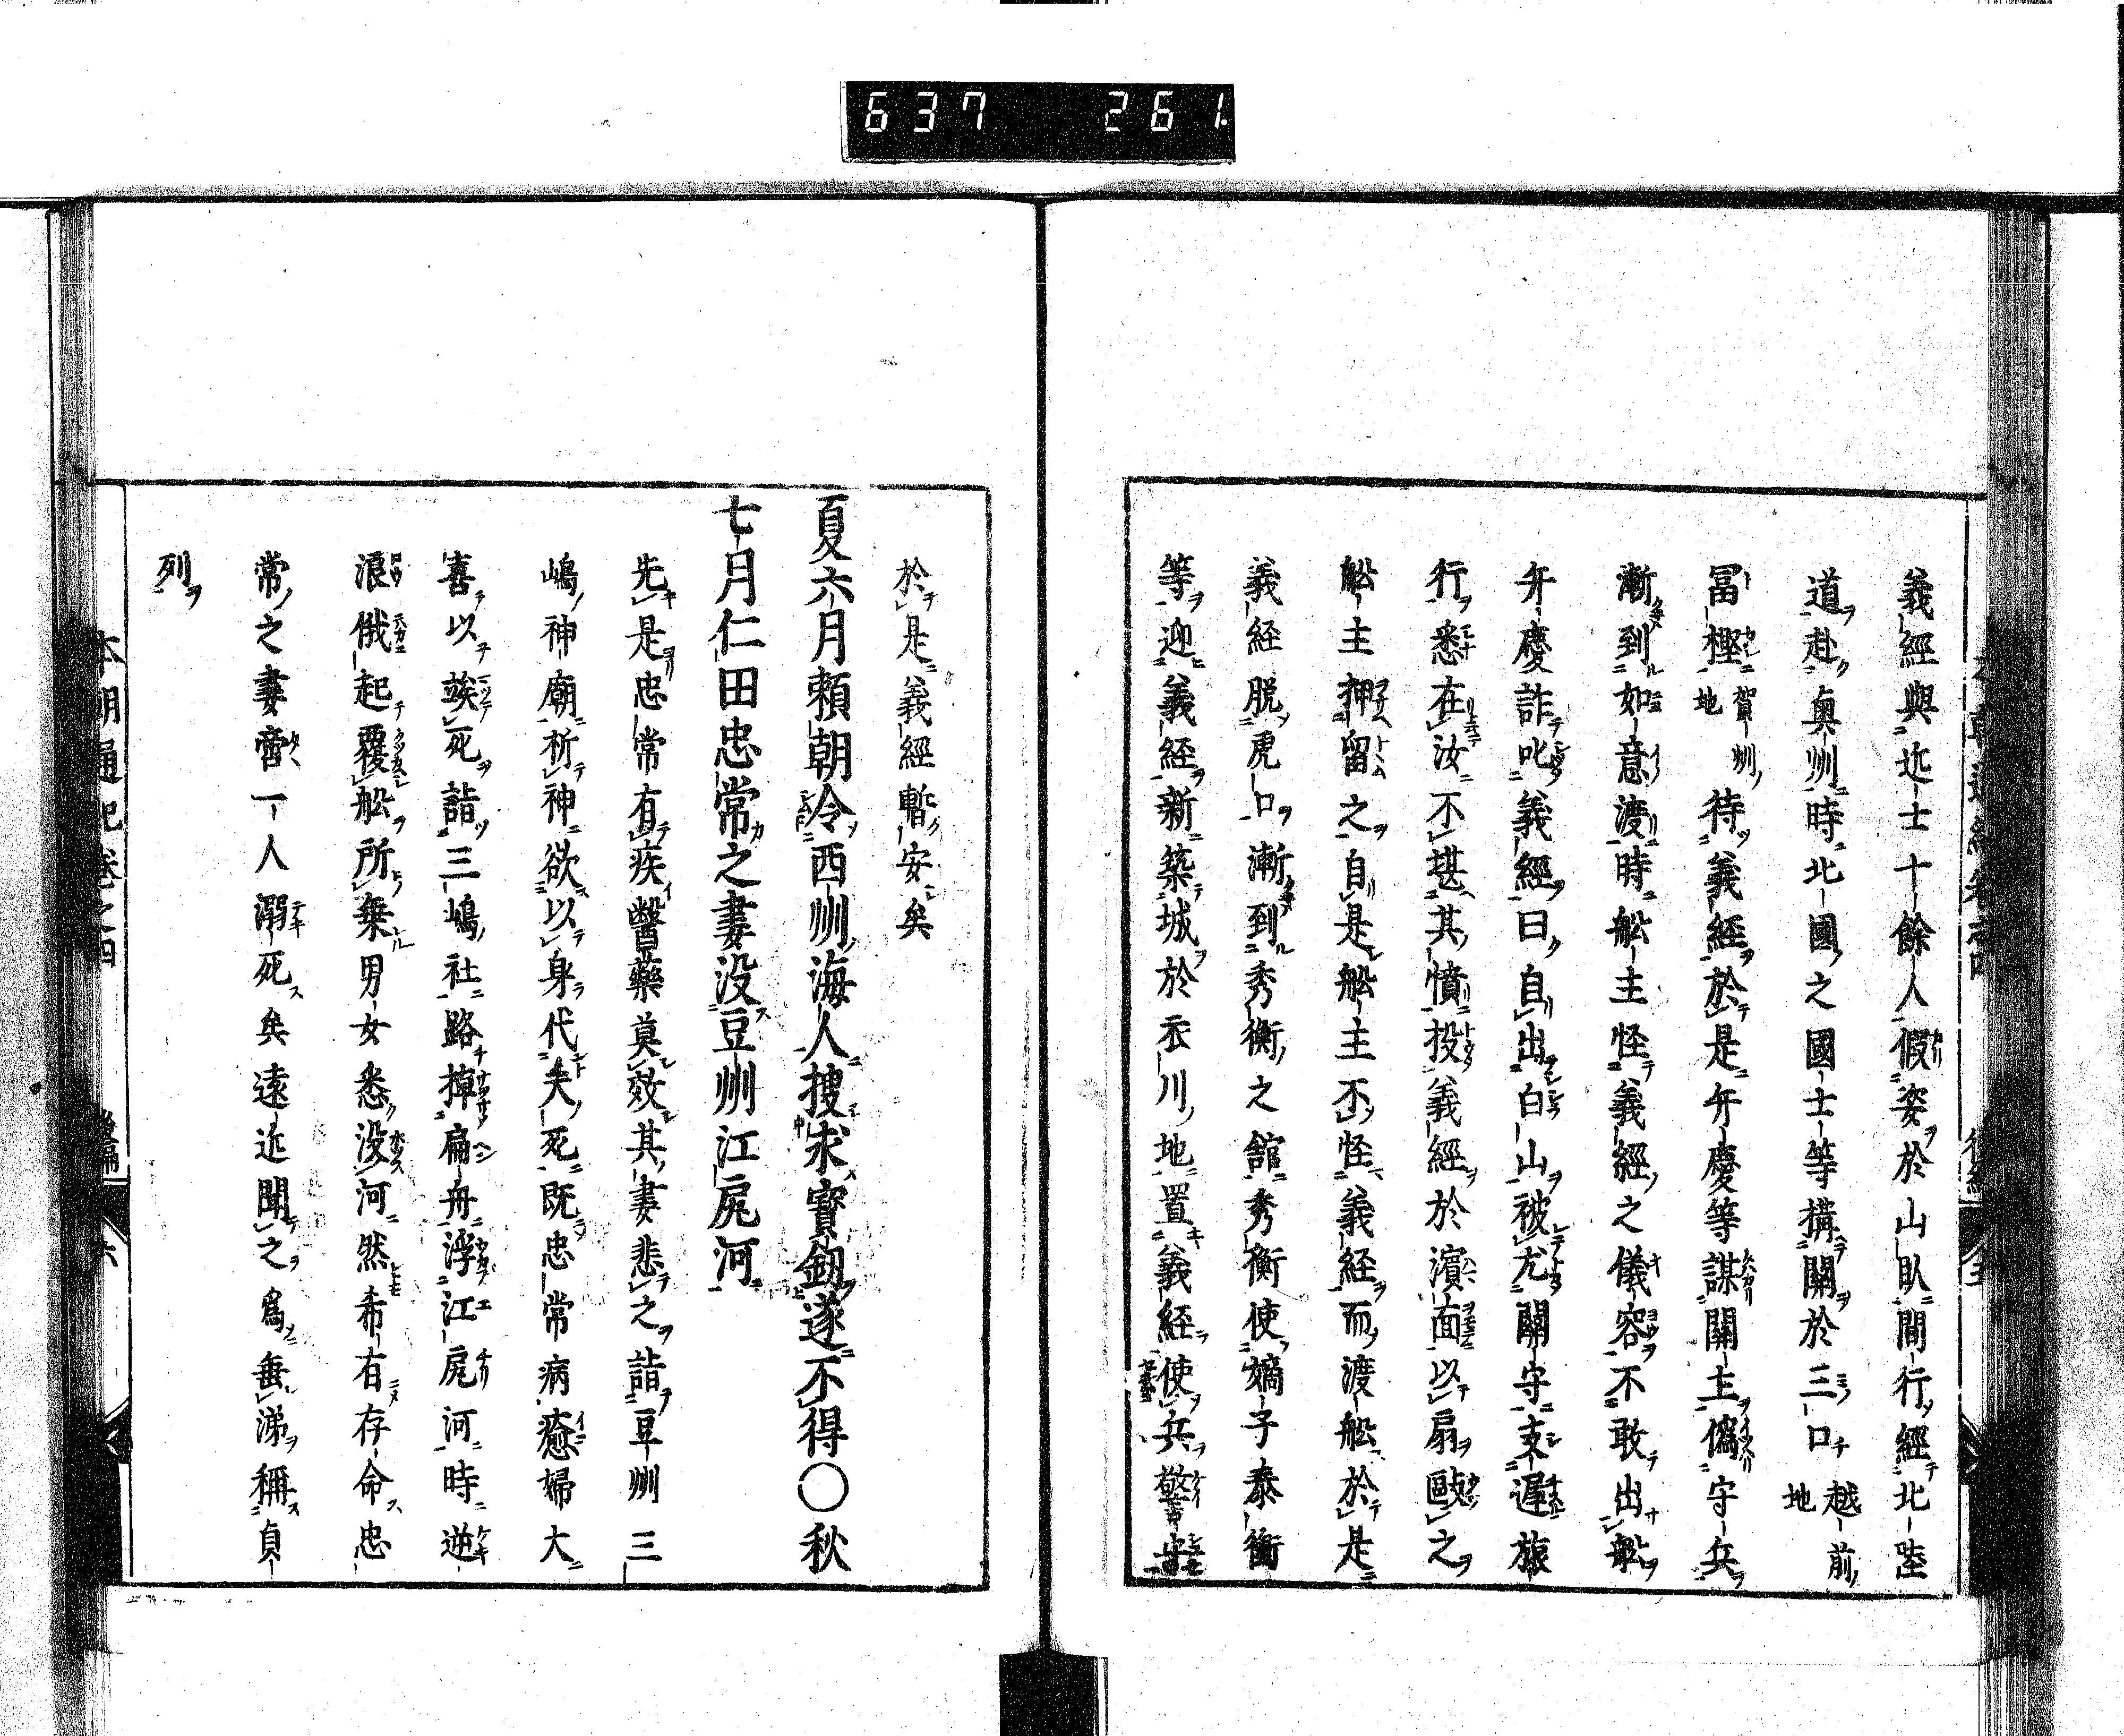 637 261
義經與近士十餘人假姿於山臥間行經北陸
道赴奧州時北國之國士等構關於三口越前地
冨樫賀州地待義經於是弁慶等謀關主僞守兵
漸到如意渡時舩主怪義經之儀容不敢出舩
弁慶詐叱義經曰自出白山被尤關守支遲旅
行悉在汝不堪其憤投義經於濵面以扇毆之
舩主押留之自是舩主不怪義経而渡舩於是
義経脱虎口漸到秀衡之舘秀衡使嫡子泰衡
等迎義経新築城於衣川地置義経使兵警固
於是義經暫安矣
夏六月賴朝令西州海人搜求寳釼遂不得〇秋
七月仁田忠常之妻没豆州江尻河
先是忠常有疾醫藥莫效其妻悲之詣豆州三
嶋神廟祈神欲以身代夫死既忠常病癒婦大
喜以竢死詣三嶋社路掉扁舟浮江尻河時逆
浪俄起覆舩所乗男女悉没河然希有存命忠
常之妻啻一人溺死矣遠近聞之爲垂涕稱貞
列
本朝通紀卷之四 後編 六